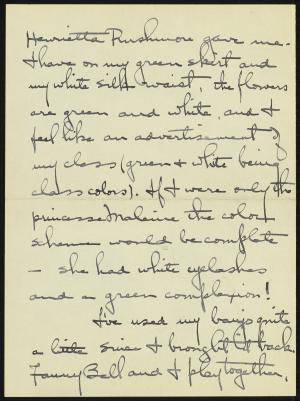 Henrietta Rushmore gave me.
I have on my green skirt and
my white silk waist, the flowers
are green and white, and I
feel like an advertisement of
my class (green & white being
class colors). If I were only the
princesse Maleine the color
scheme would be complete
— she had white eyelashes
and a green complexion!
I've used my banjo quite
a little since I brought it back.
Fanny Bell and I play together,